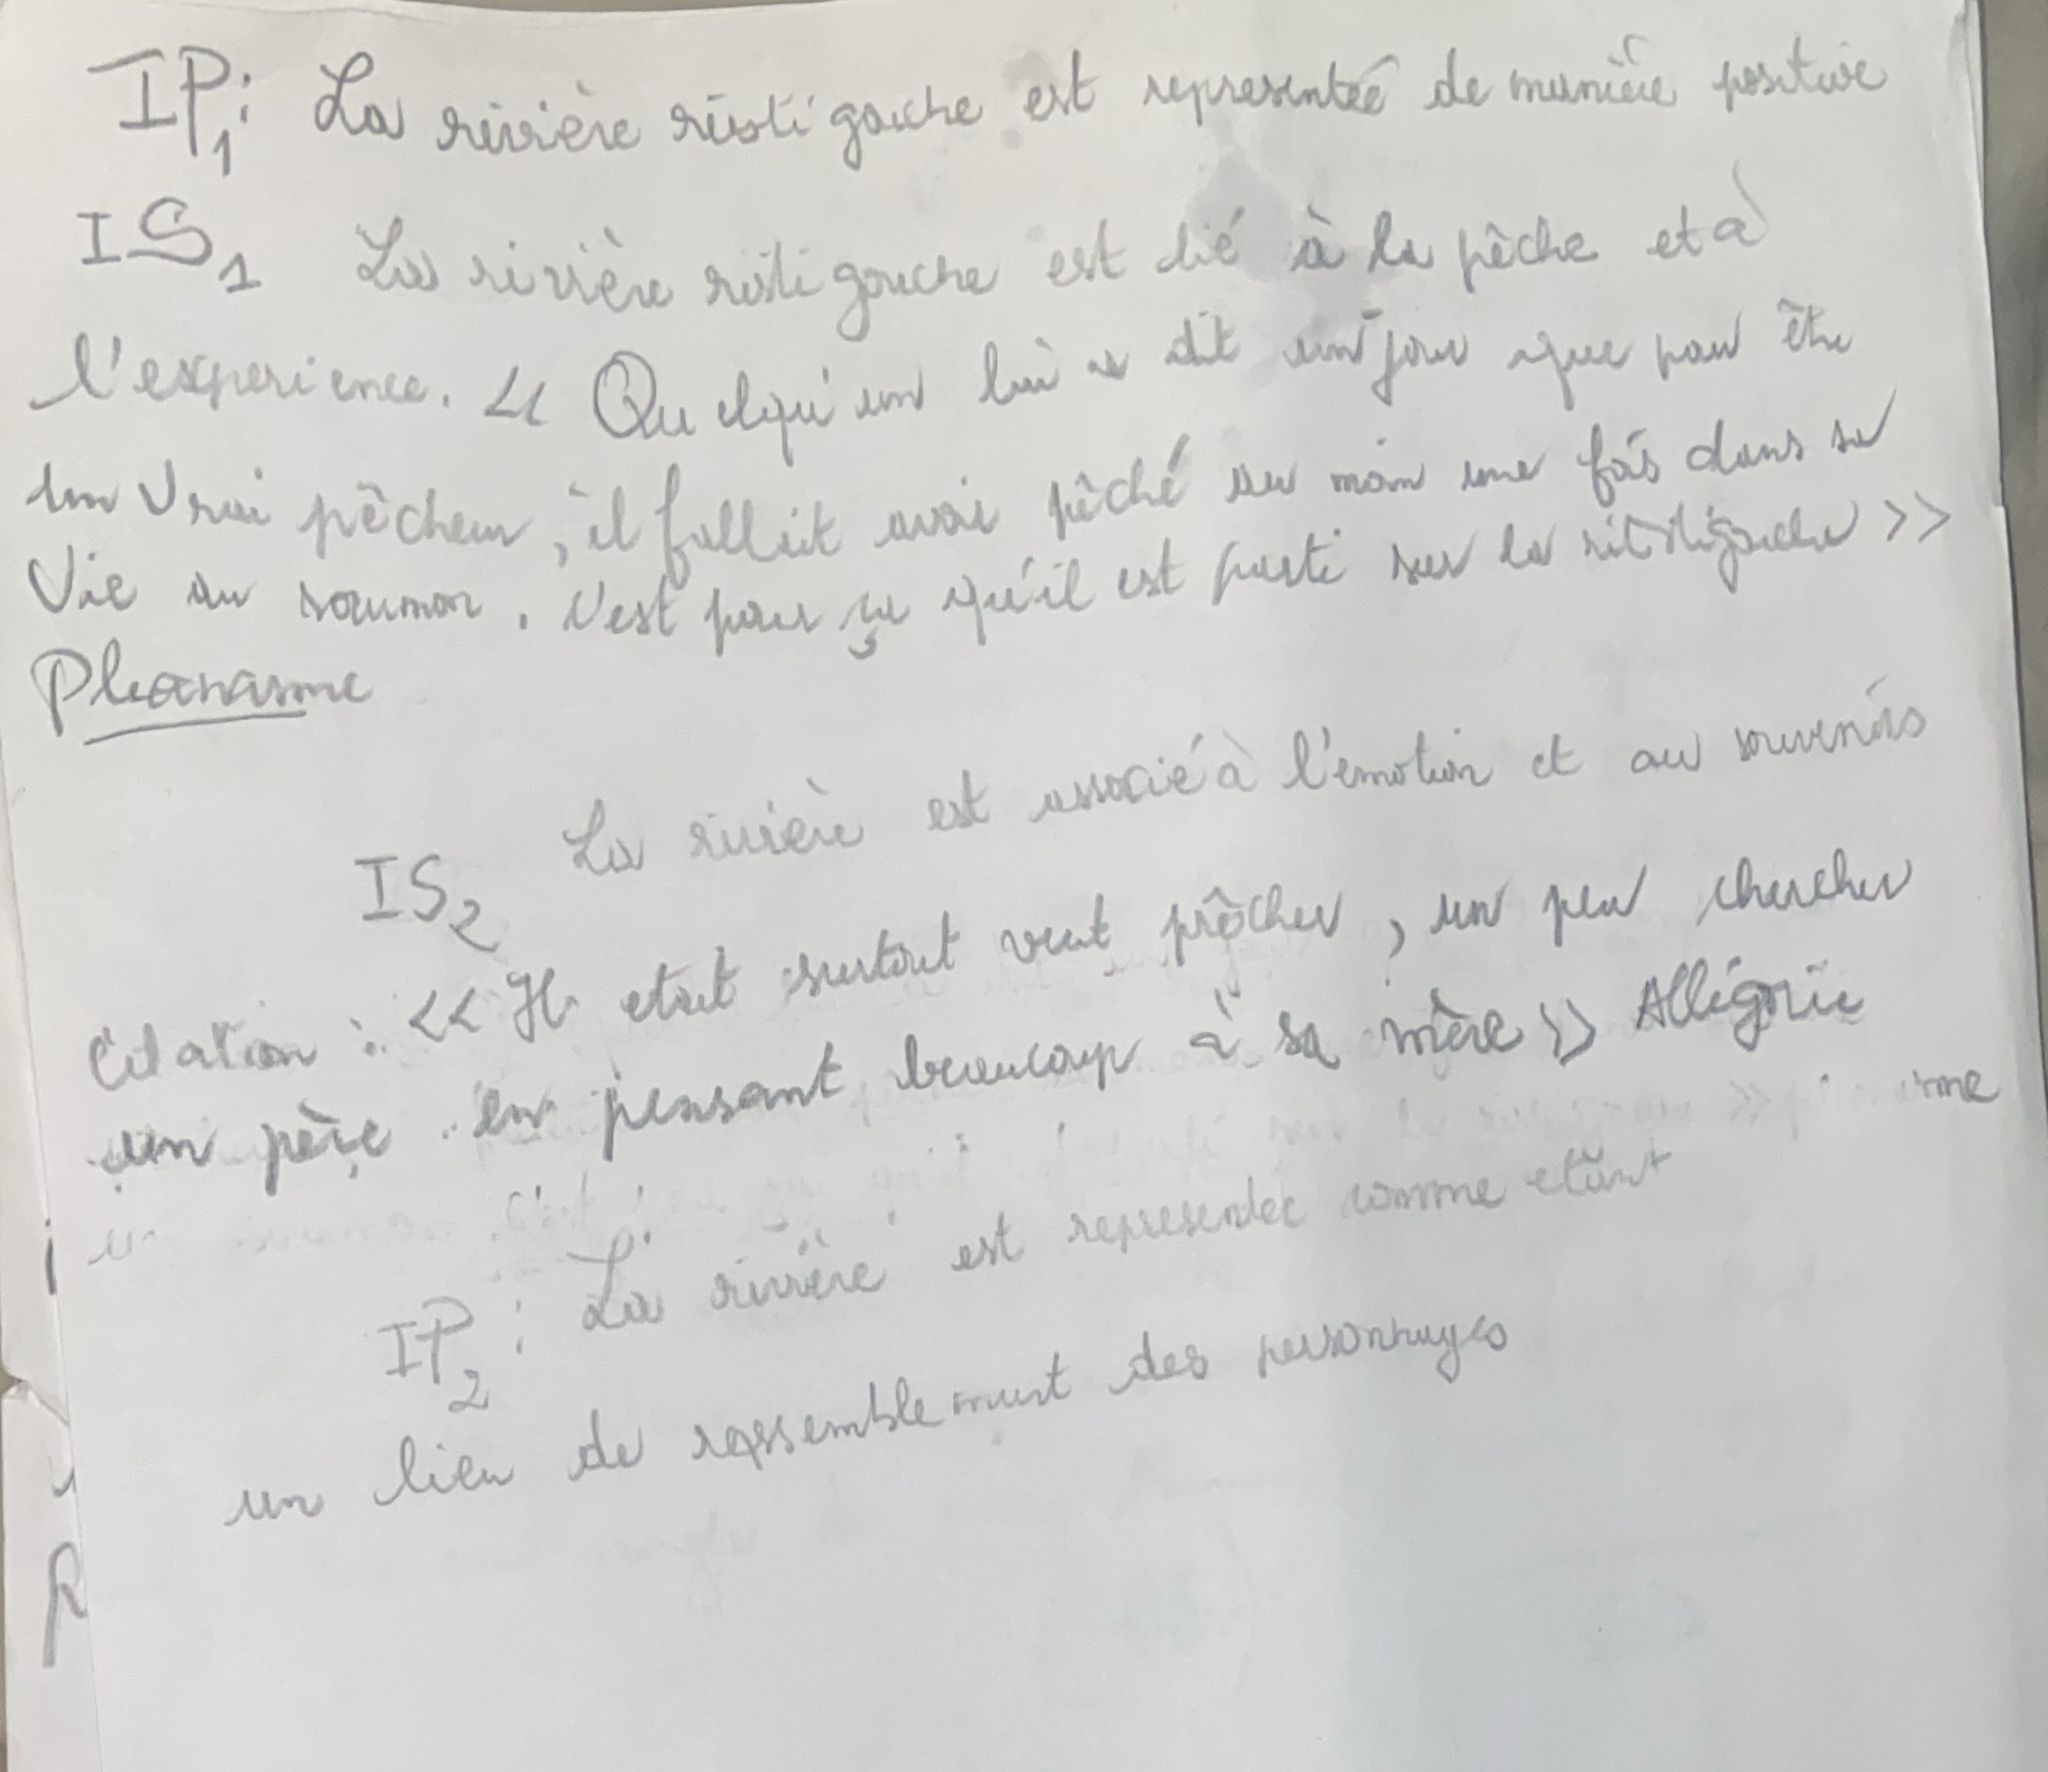 IP1: La rivière ristigouche est representée de manière positive
IS1 La rivière ristigouche est lié à la pêche et à
l'experience. << Quelqu'un lui a dit un jour que pour être
un vrai pêcheur, il fallait avoir pêché au moin une fois dans sa
vie au saumon. C'est pour ça qu'il est parti sur la ristigouche >>
Pleonasme
IS2 La rivière est associé à l'emotion et au souvenirs
Citation : << Il etait surtout veut pêcher, un peu chercher
un père en pensant beaucoup à sa mère >> Allégorie
IP2 : La rivière est representée comme etant
un lieu de rassemblement des personnages